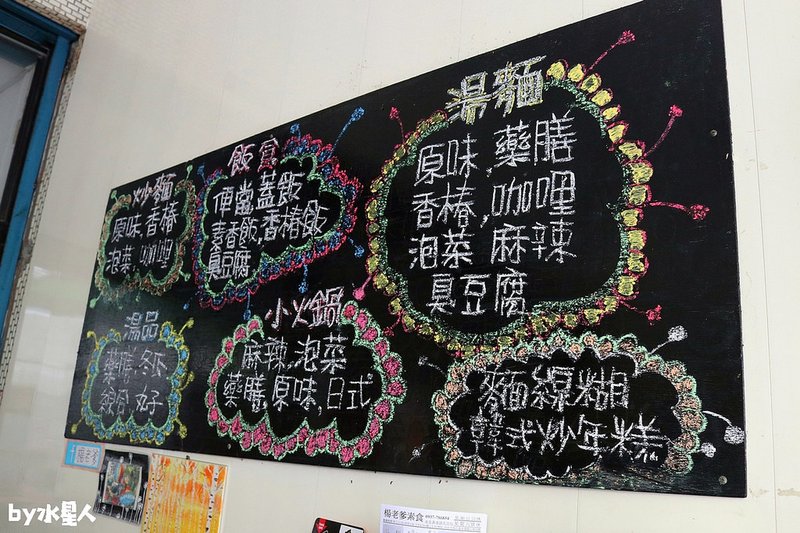 炒麵
原味,香椿
泡菜,咖哩
飯食
便當蓋飯
素香飯,香椿飯
臭豆腐
湯麵
原味,藥膳
香椿,咖哩
泡菜 麻辣
臭豆腐
湯品
藥膳 冬
好
小火鍋
麻辣,泡菜
藥膳,原味,日式
麵線糊
韓式炒年糕
楊老爹素食
by水星人